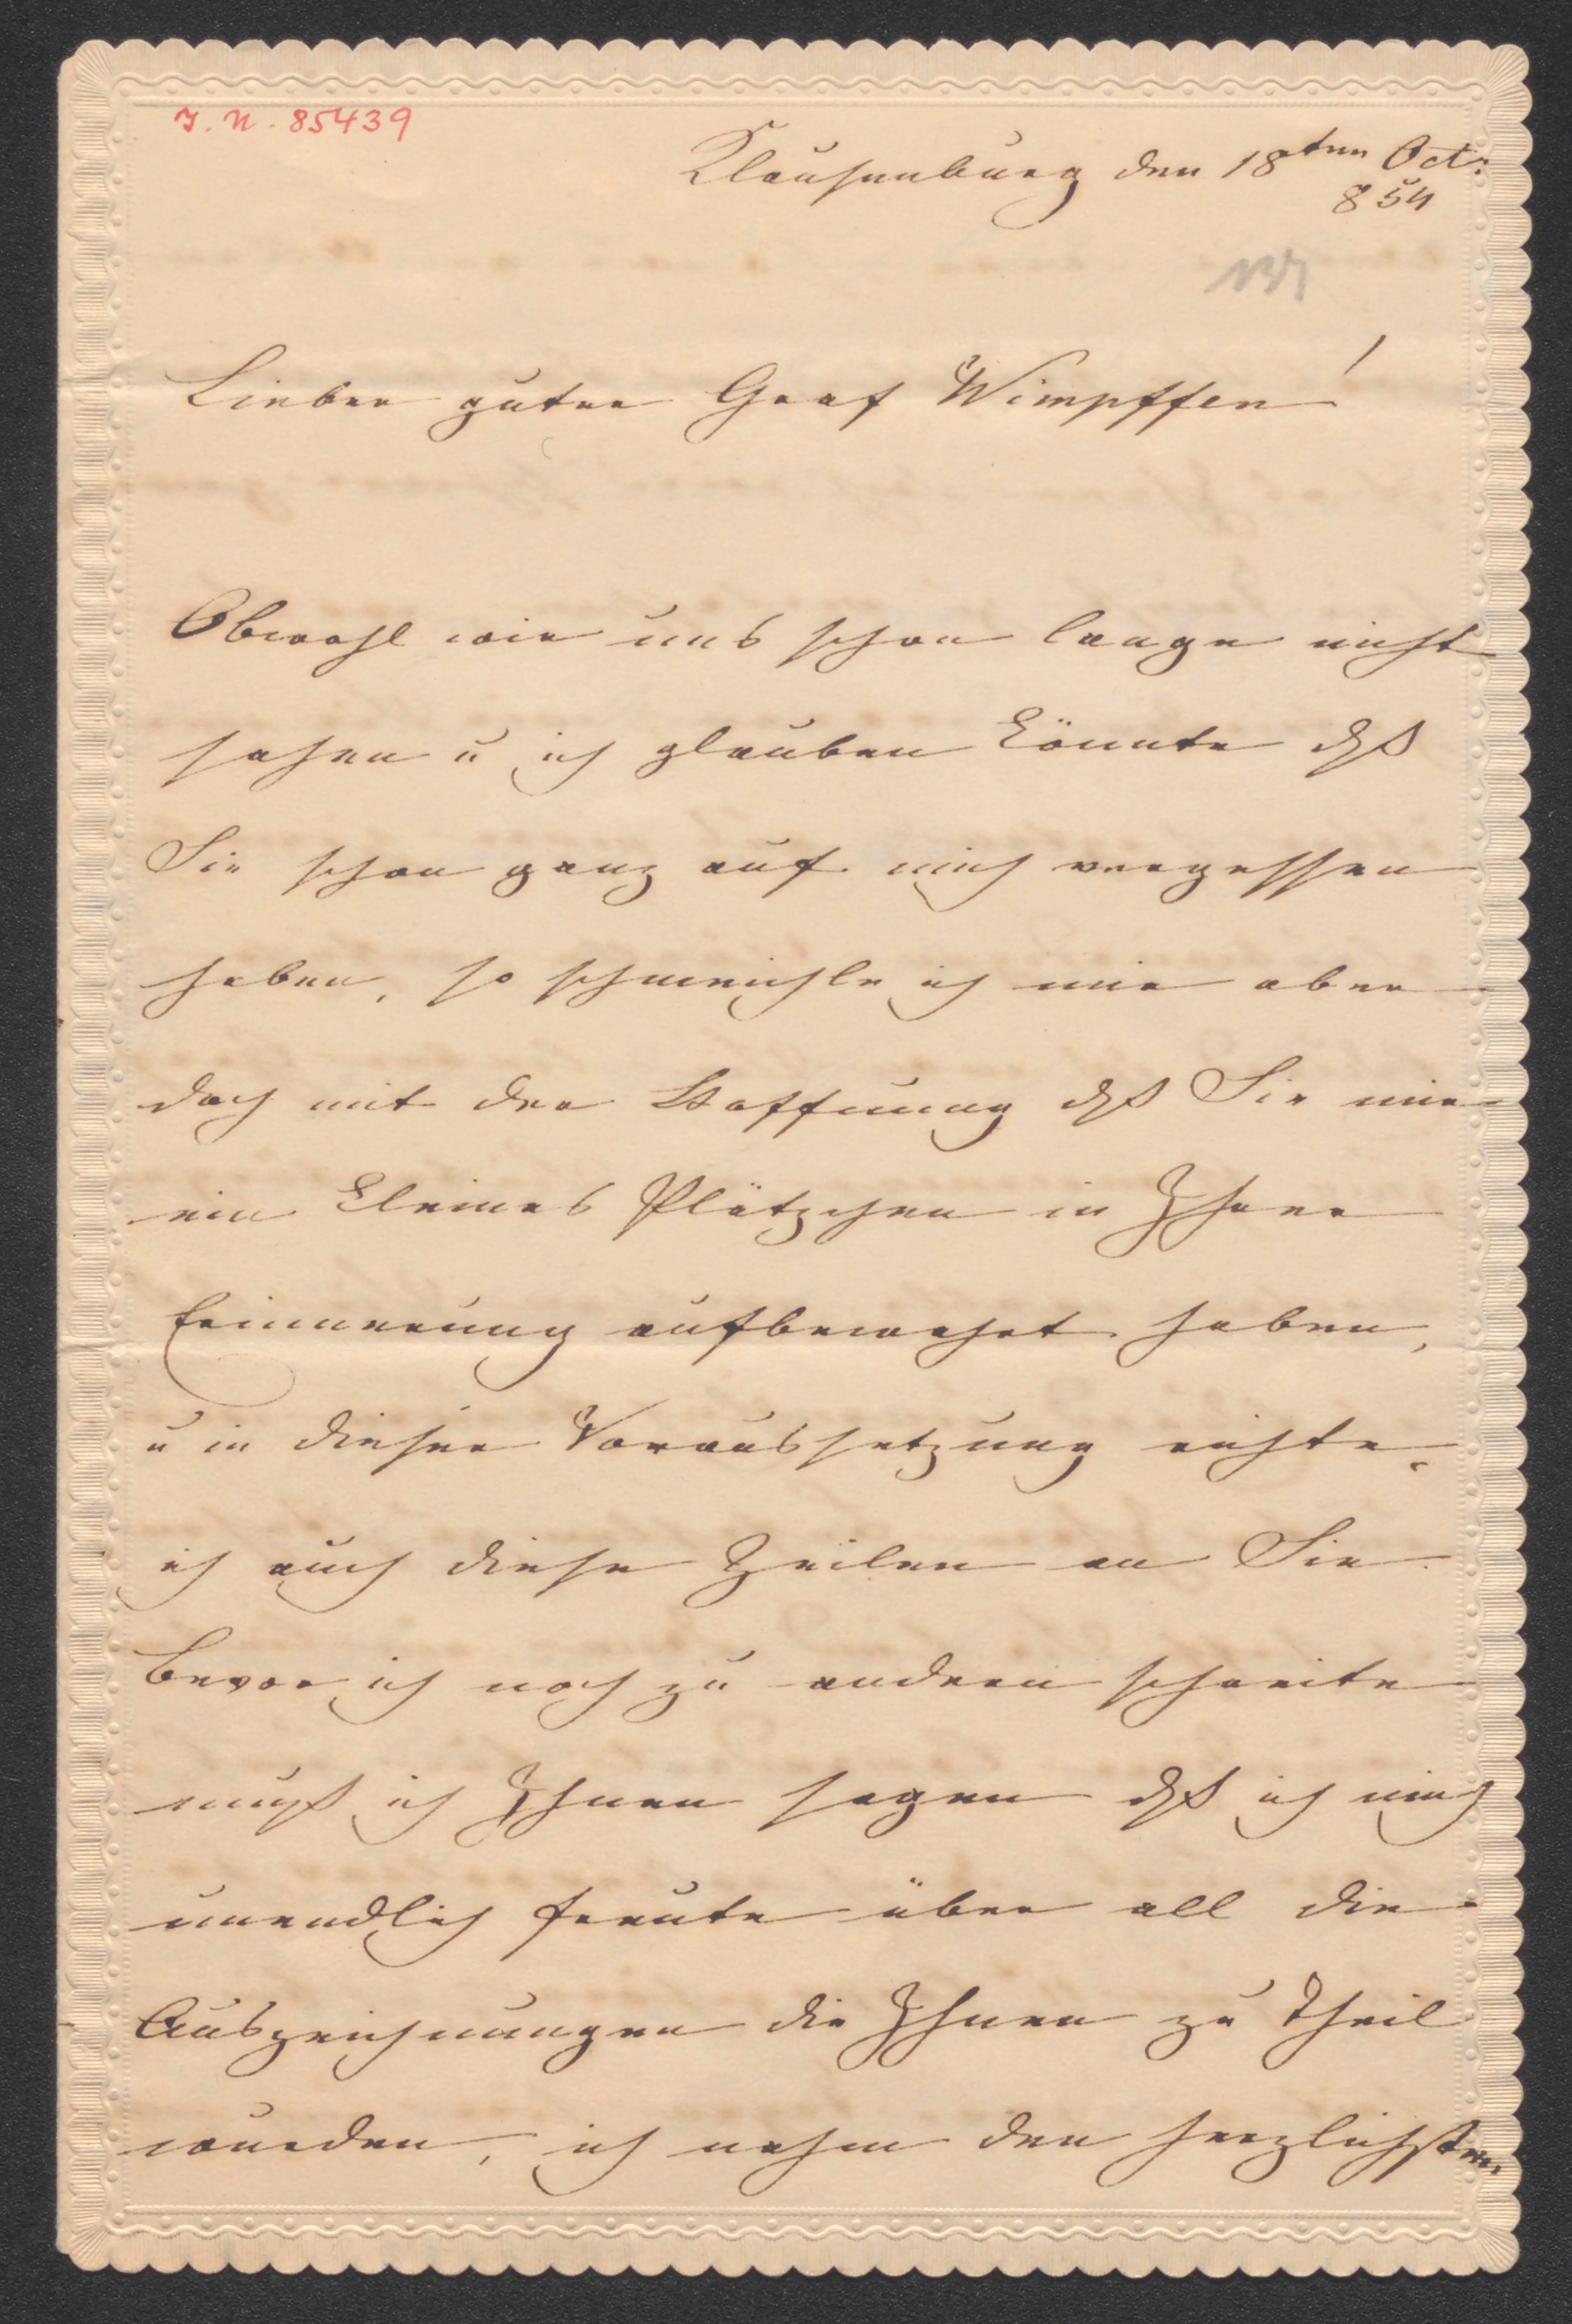 I. N. 85439
Klausenburg den 18ten Oct:
854
Lieber guter Graf Wimpffen!
Obwohl wir uns schon lange nicht
sahen u ich glauben könnte dß
Sie schon ganz auf mich vergessen
haben, so schmeichle ich mir aber
doch mit der Hoffnung dß Sie mir
ein kleines Plätzchen in Ihrer
Erinnerung aufbewahrt haben,
u in dieser Voraussetzung richte
ich auch diese Zeilen an Sie.
Bevor ich noch zu andern schreite
muß ich Ihnen sagen dß ich mich
unendlich freute über all die
Auszeichnungen die Ihnen zu Theil
wurden, ich nahm den herzlichsten